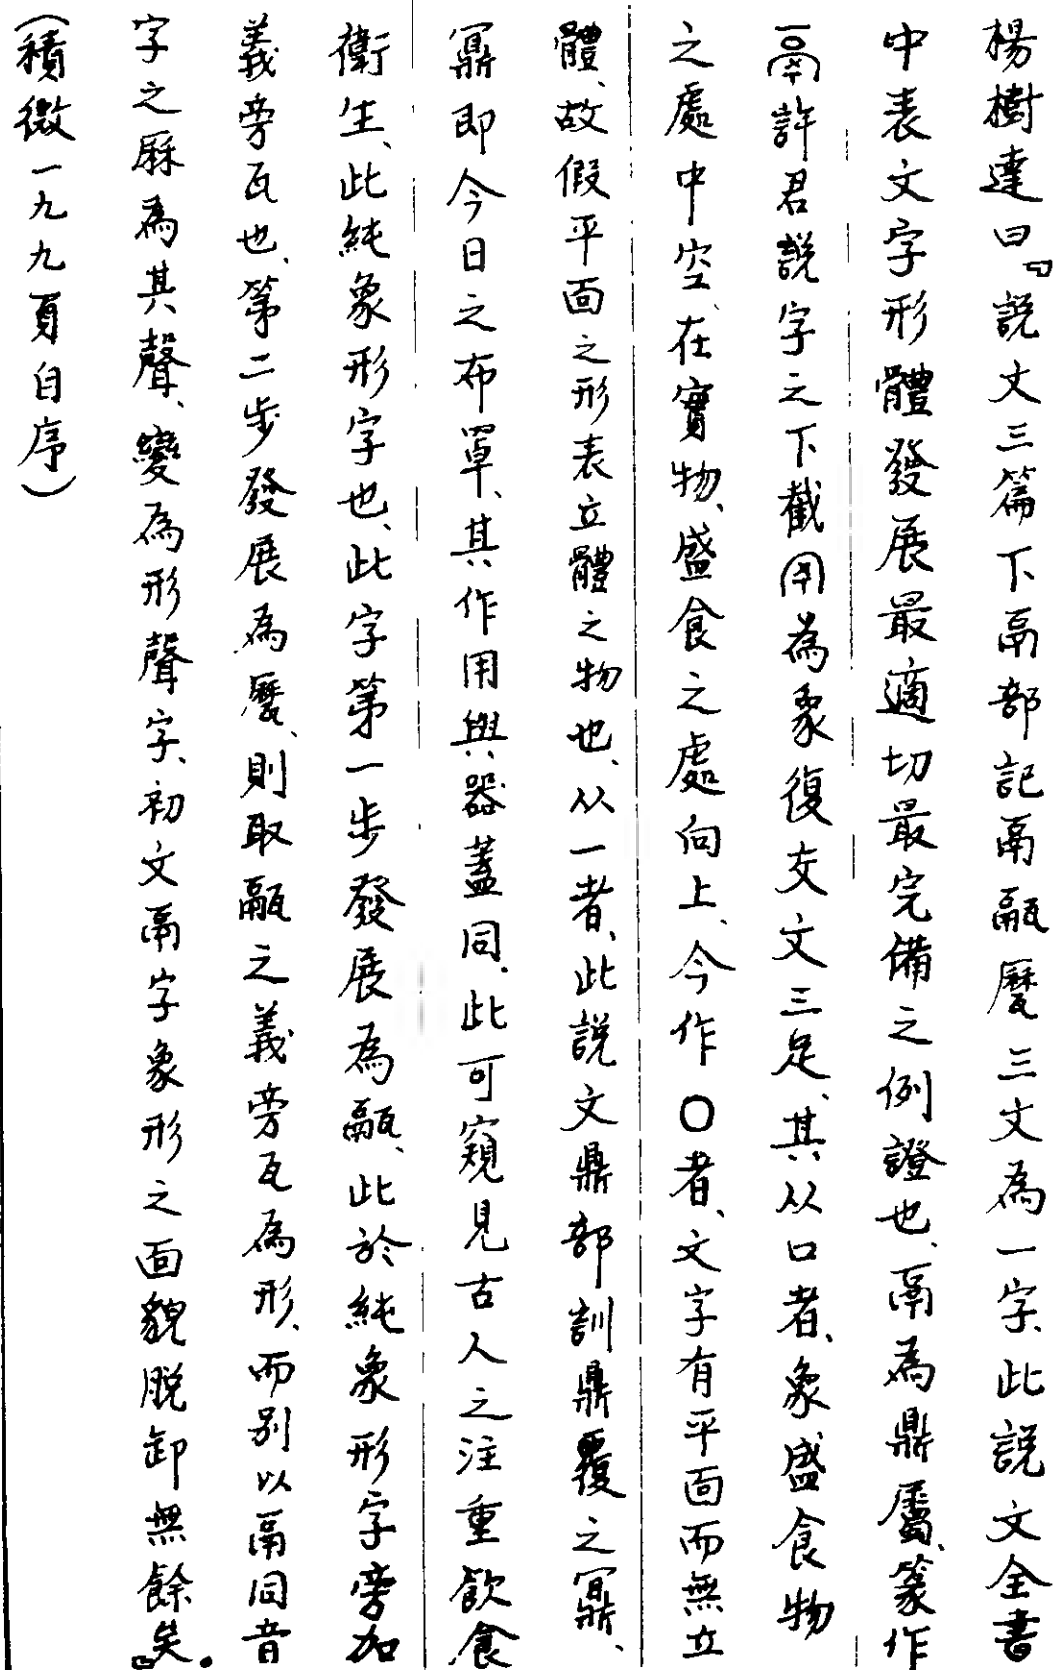 楊樹達曰『説文三篇下鬲部記鬲䰛㽁三文為一字、此説文全書
中表文字形體發展最適切最完備之例證也、鬲為鼎屬、篆作
許君説字之下截為象復交文三足、其从口者、象盛食物
之處中空、在實物、盛食之處向上、今作〇者、文字有平面而無立
體、故假平面之形表立體之物也、从一者、此説文鼎部訓鼎覆之鼏、
鼏即今日之布罩、其作用與器蓋同、此可窺見古人之注重飲食
衛生、此純象形字也、此字第一步發展為䰛、此於純象形字旁加
義旁瓦也、第二步發展為㽁、則取䰛之義旁瓦為形、而别以鬲同音
字之厤為其聲、變為形聲字、初文鬲字象形之面貌脱卸無餘矣。』
(積微一九九頁自序)